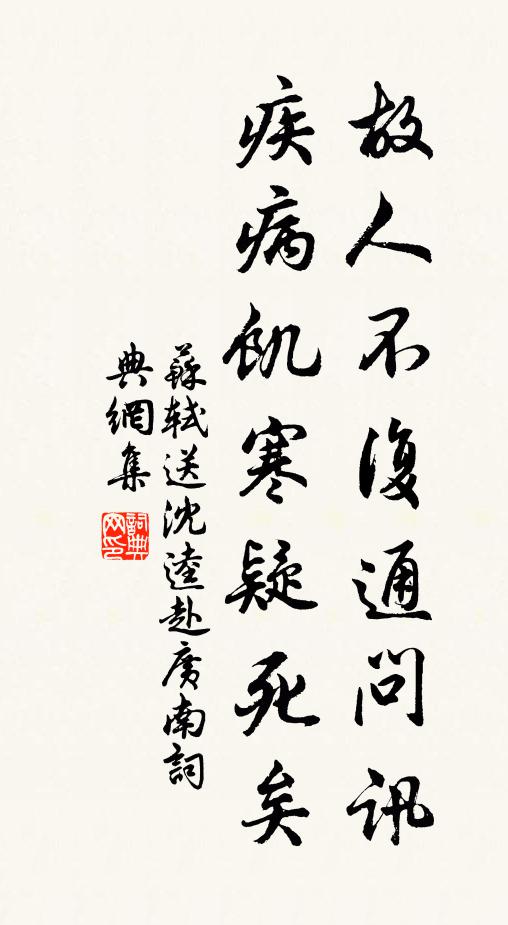 故人不復通問訊
疾病飢寒疑死矣
蘇軾送沈逵赴廣南詞
典網集
詞典網印